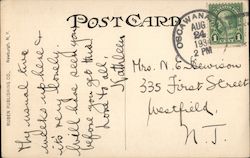 POST CARD
RUBEN PUBLISHING CO.
Newburgh, N.Y.
OSCAWANA
AUG
24
193
2 PM
1
My usual two
weeks up here &
its very lonely.
Will have seen you
before you get this.
Love to all,
Kathleen
Mrs. N. S. Lewison
335 First Street
Westfield
N.J.